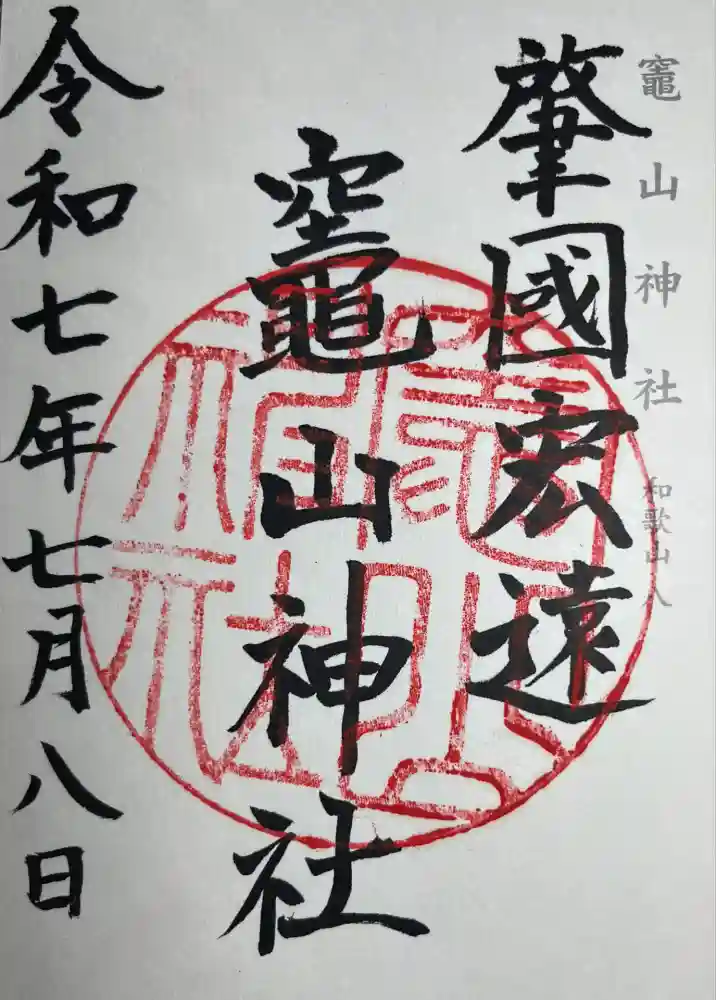 竈山神社 和歌山 八
肇國宏遠
竈山神社
令和七年七月八日